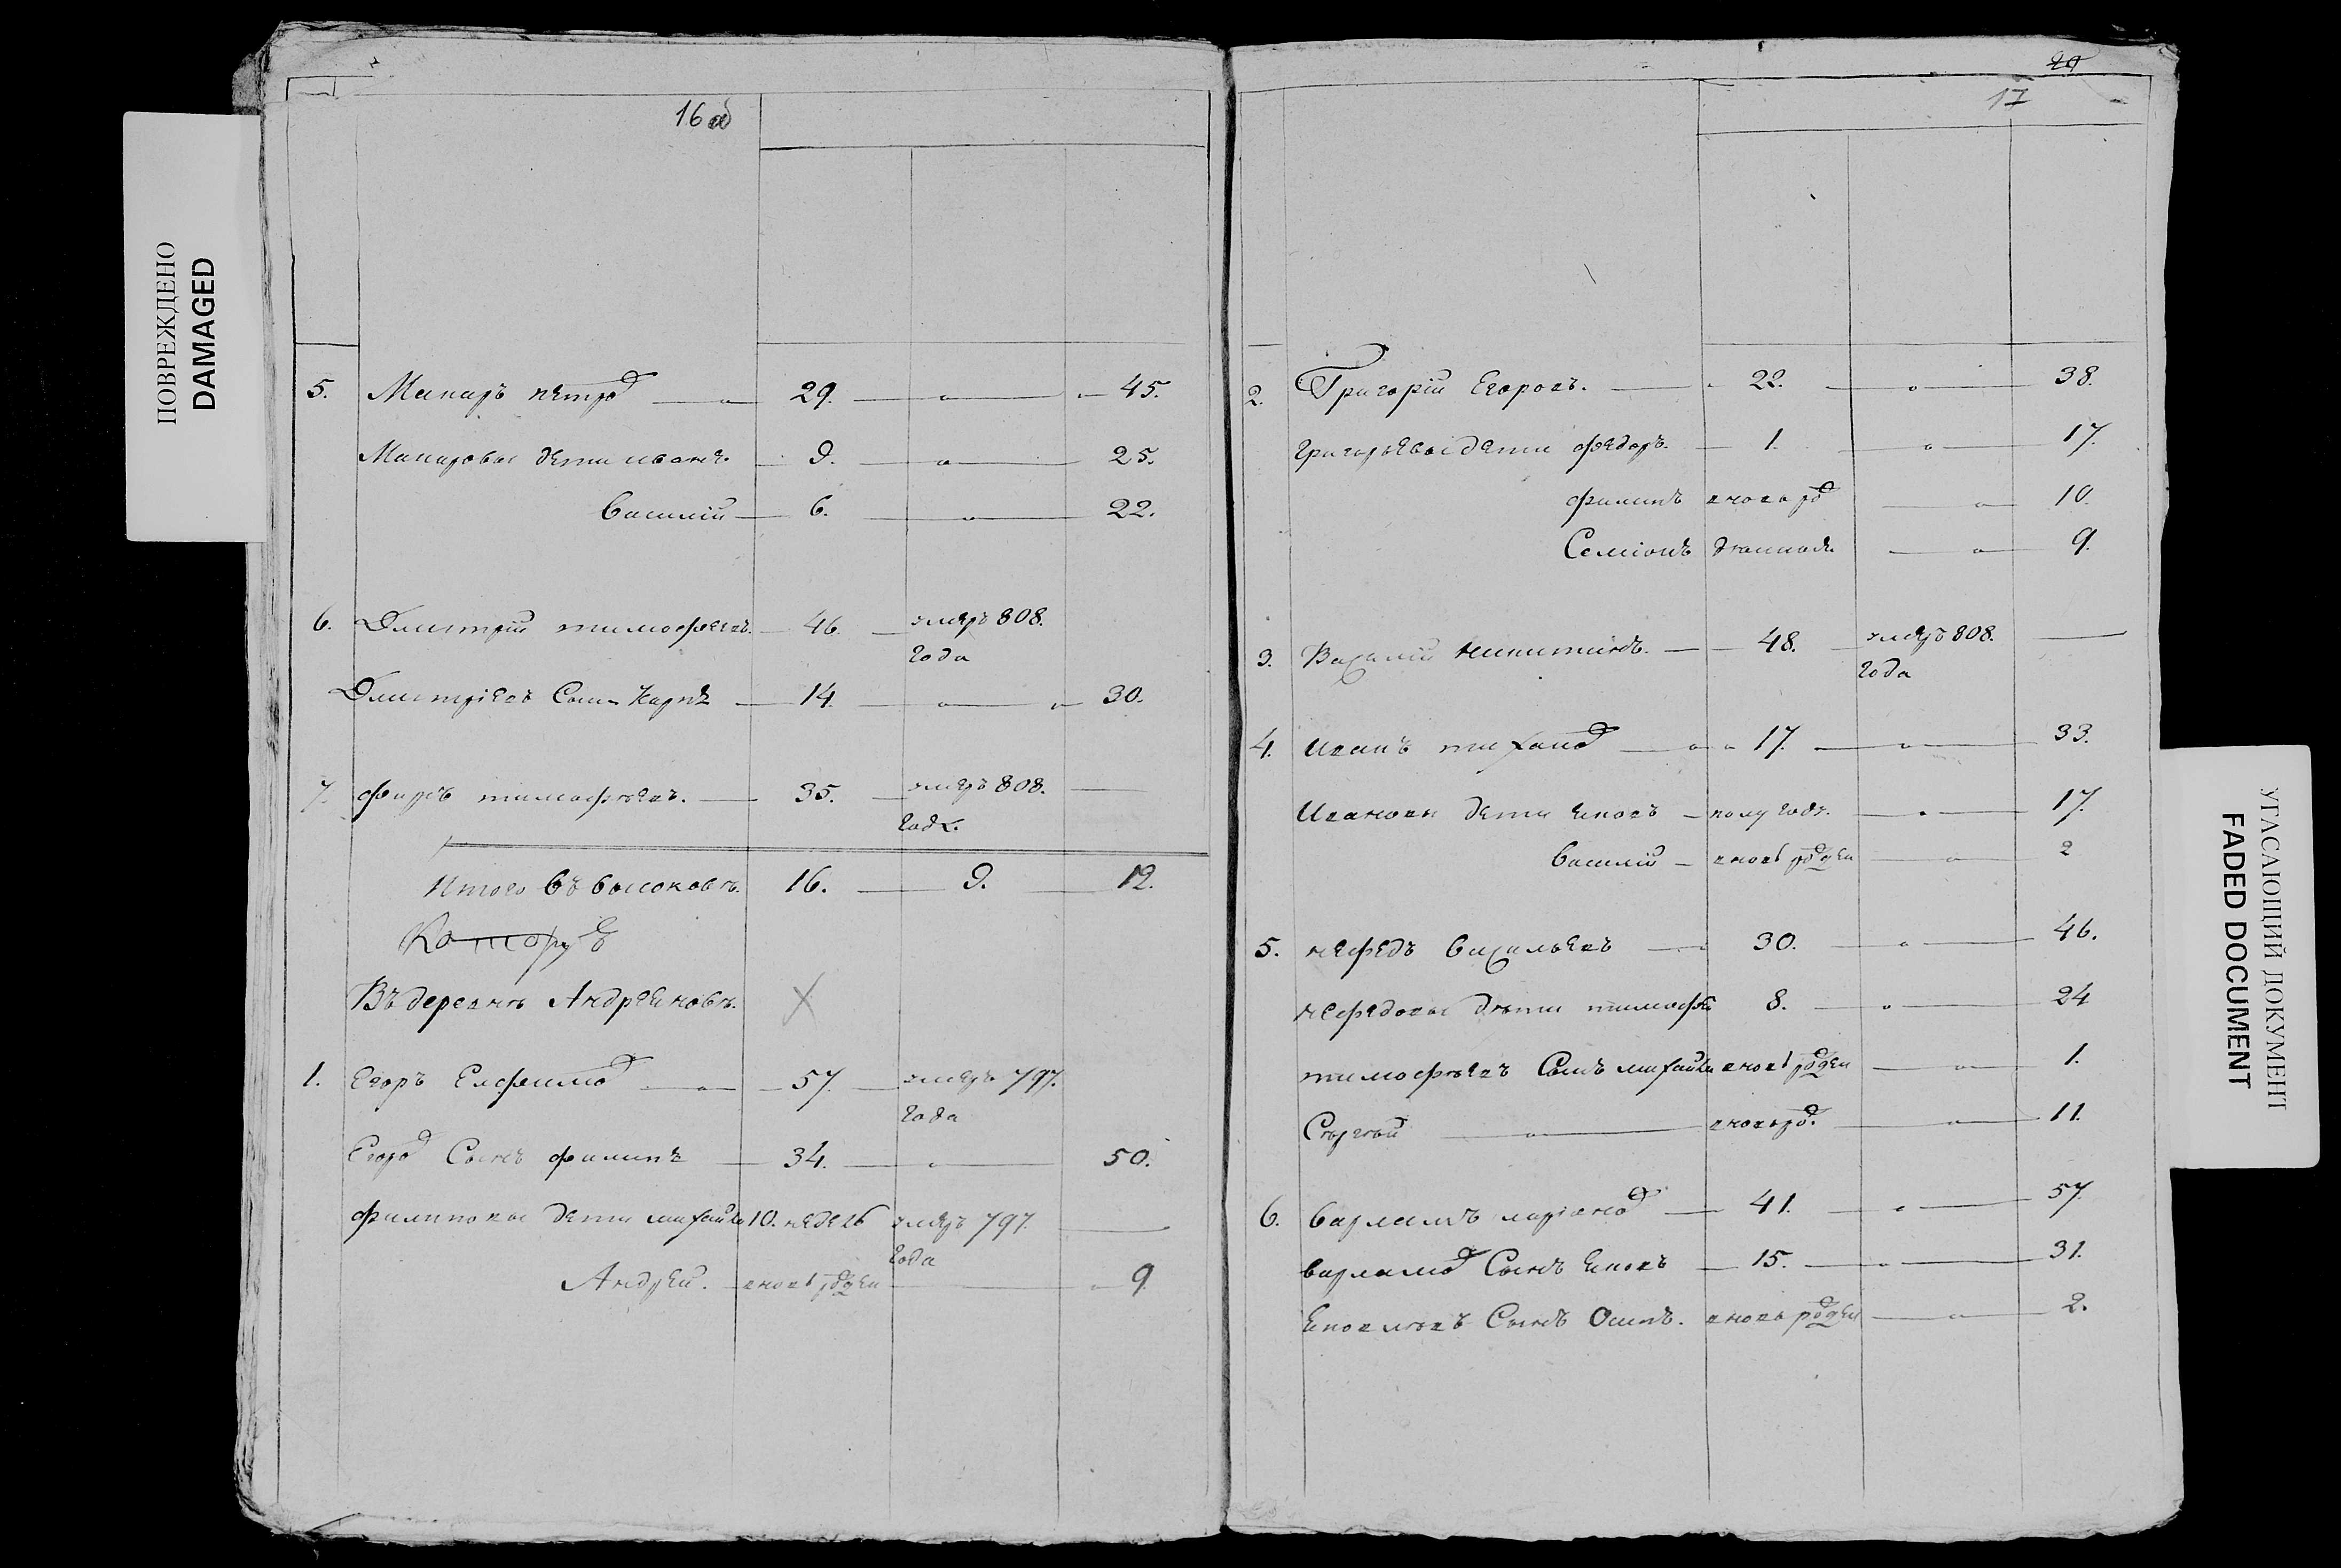 ПОВРЕЖДЕНО
DAMAGED
16 об
5. Макаръ петров 29. 45.
Макаровы дети иванъ. 9. 25.
Василий 6. 22.
6. Дмитрій тимофеевъ. 46. умеръ 808.
года
Дмитріевъ Сынъ Карпъ 14. 30.
7. фирсъ тимофѣевъ. 35. умеръ 808.
года.
Итого въ высоковѣ. 16. 9. 12.
Въ деревнѣ Андреиковѣ.
1. Егоръ Ефимов 57. умеръ 797.
года
Егоров Сынъ филипъ 34. 50.
филиповы дети михайла 10. недель умеръ 797.
года
Андрей. вновь рожден 9.
29
17
2. Григорій Егоровъ. 22. 38.
григорьевы дети федоръ. 1. 17.
филипъ вновь рож 10.
Семіонъ 9.
3. Василий никитинъ. 48. умеръ 808.
года
4. Иванъ тиханов 17. 33.
Ивановы дети Яковъ полугоду. 17.
Василий вновь рожден 2
5. нефедъ Васильевъ 30. 46.
нефедовы дѣти тимофей 8. 24
тимофѣевъ Сынъ михайла вновь рожден 1.
Сергѣй вновь рож. 11.
6. Варламъ ларіонов 41. 57
варламов Сынъ Яковъ 15. 31.
Яковлевъ Сынъ Осипъ. вновь рожден 2.
УГАСАЮЩИЙ ДОКУМЕНТ
FADED DOCUMENT